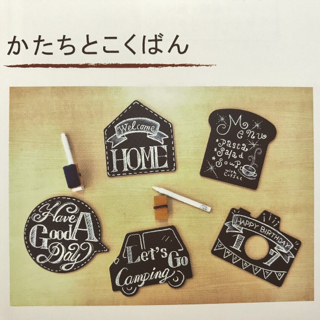 かたちとこくばん
Welcome
HOME
MENU
Pasta
Salad
Soup
Have
A
Good
Day
Let's
Go
Camping
HAPPY BIRTHDAY
17